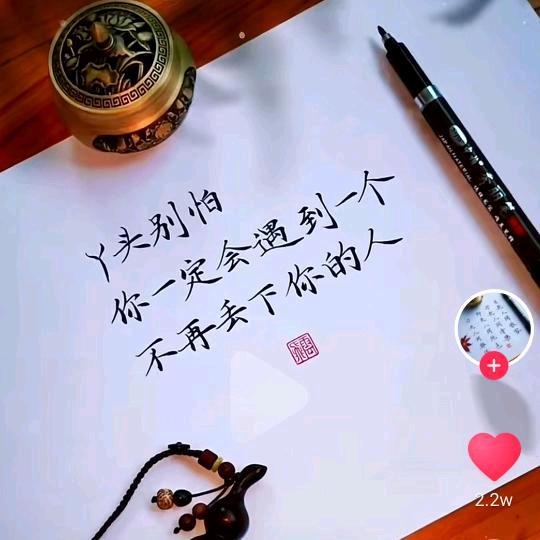 丫头别怕
你一定会遇到一个
不再丢下你的人
2.2w